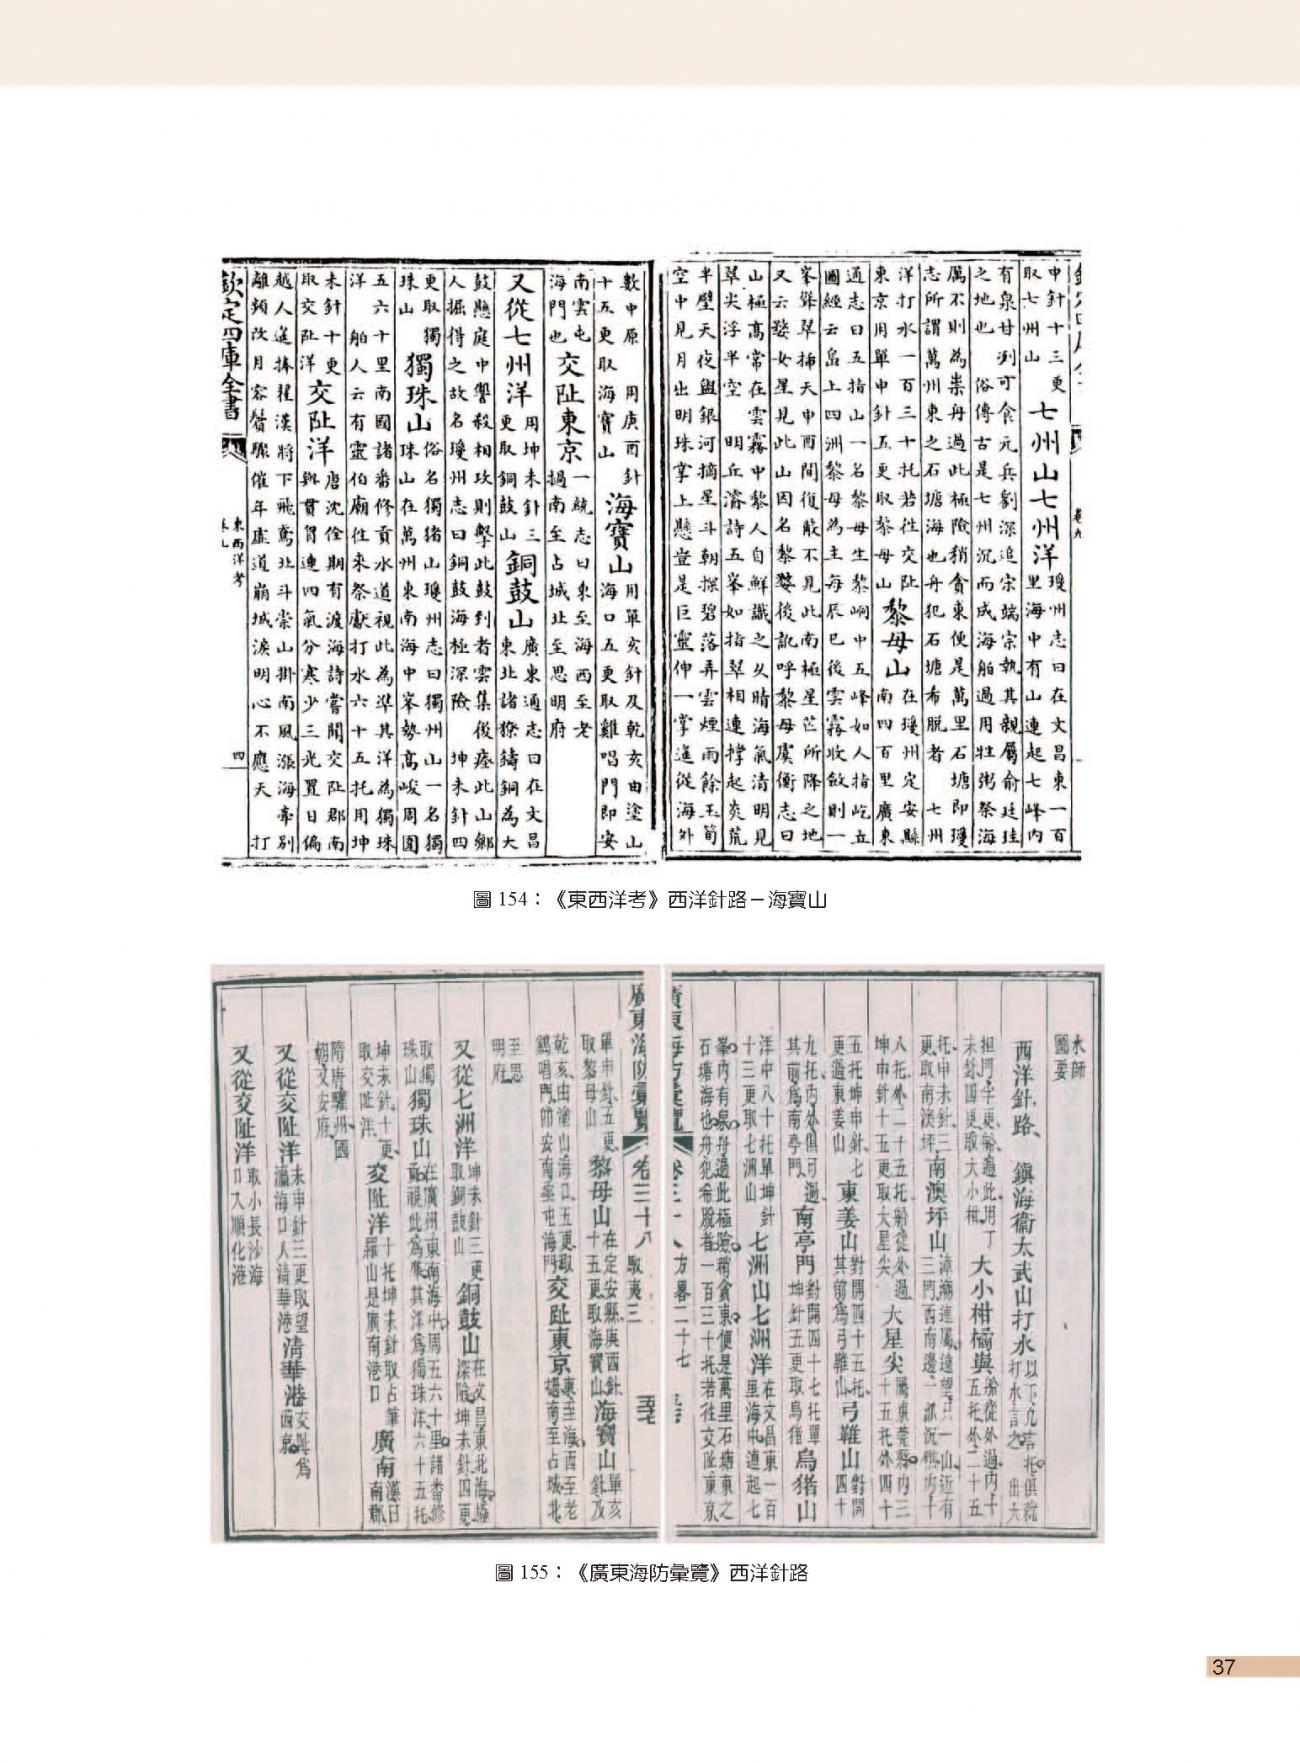 欽定四庫全書
卷九
申針十三更
取七州山
七州山七州洋
瓊州志曰在文昌東一百
里海中有山連起七峰內
有泉甘洌可食元兵劉深追宋端宗執其親屬俞廷珪
之地也 俗傳古是七州沉而成海舶過用牲粥祭海
厲不則為祟舟過此極險稍貪東便是萬里石塘即瓊
志所謂萬州東之石塘海也舟犯石塘希脫者 七州
洋打水一百三十托若往交阯
東京用單申針五更取黎母山
黎母山
在瓊州定安縣
南四百里廣東
通志曰五指山一名黎母生黎峒中五峰如人指屹立
圖經云島上四洲黎母為主每辰巳後雲霧收斂則一
峯聳翠插天申酉間復蔽不見此南極星芒所降之地
又云婺女星見此山因名黎婺後訛呼黎母虞衡志曰
山極高常在雲霧中黎人自鮮識之久晴海氣清明見
翠尖浮半空 明丘濬詩五峯如指翠相連撑起炎荒
半壁天夜盥銀河摘星斗朝探碧落弄雲煙雨餘玉筍
空中見月出明珠掌上懸豈是巨靈伸一掌遙從海外
數中原 用庚酉針
十五更取海寶山
海寶山
用單亥針及乾亥由塗山
海口五更取雞唱門即安
南雲屯
海門也
交阯東京
一統志曰東至海西至老
撾南至占城北至思明府
又從七州洋
用坤未針三
更取銅鼓山
銅鼓山
廣東通志曰在文昌
東北諸獠鑄銅為大
鼓懸庭中讐殺相攻則擊此鼓到者雲集後瘞此山鄉
人掘得之故名瓊州志曰銅鼓海極深險 坤未針四
更取獨
珠山
獨珠山
俗名獨猪山瓊州志曰獨州山一名獨
珠山在萬州東南海中峯勢高峻周圍
五六十里南國諸番修貢水道視此為準其洋為獨珠
洋 舶人云有靈伯廟往來祭獻打水六十五托用坤
未針十更
取交阯洋
交阯洋
唐沈佺期有渡海詩嘗聞交阯郡南
與貫胷連四氣分寒少三光置日偏
越人遥捧翟漢將下飛鳶北斗崇山掛南風漲海牽别
離頻改月容鬢驟催年虛道崩城淚明心不應天 打
欽定四庫全書
東西洋考
卷九
四
圖 154：《東西洋考》西洋針路－海寶山
水師
圖要
西洋針路
鎮海衞太武山打水
大小柑橘與
南澳坪山
大星尖
東姜山
對開四十五托
其前爲弓鞋山
弓鞋山
對開
四十
九托內外俱可過
其前爲南亭門
南亭門
對開四十七托單
坤針五更取烏猪
烏猪山
洋中八十托單坤針
十三更取七洲山
七洲山七洲洋
在文昌東一百
里海中連起七
峯內有泉舟過此極險稍貪東便是萬里石塘東之
石塘海也舟犯希脫者一百三十托若往交阯東京
廣東海防彙覽
卷三十八
方畧二十七
廣東海防彙覽
卷三十八
馭夷三
單申針五更
取黎母山
黎母山
在定安縣庚酉針
十五更取海寶山
海寶山
單亥
針及
乾亥由塗山海口五更取
鷄唱門卽安南雲屯海門
交阯東京
東至海西至老
撾南至占城北
至思
明府
又從七洲洋
坤未針三更
取銅鼓山
銅鼓山
在文昌東北海極
深險坤未針四更
取獨
珠山
獨珠山
坤未針十更
取交阯洋
交阯洋
廣南
隋唐驩州國
朝乂安府
又從交阯洋
未申針三更取望
瀛海口入清華港
清華港
交阯爲
西京
又從交阯洋
取小長沙海
口入順化港
圖 155：《廣東海防彙覽》西洋針路
37